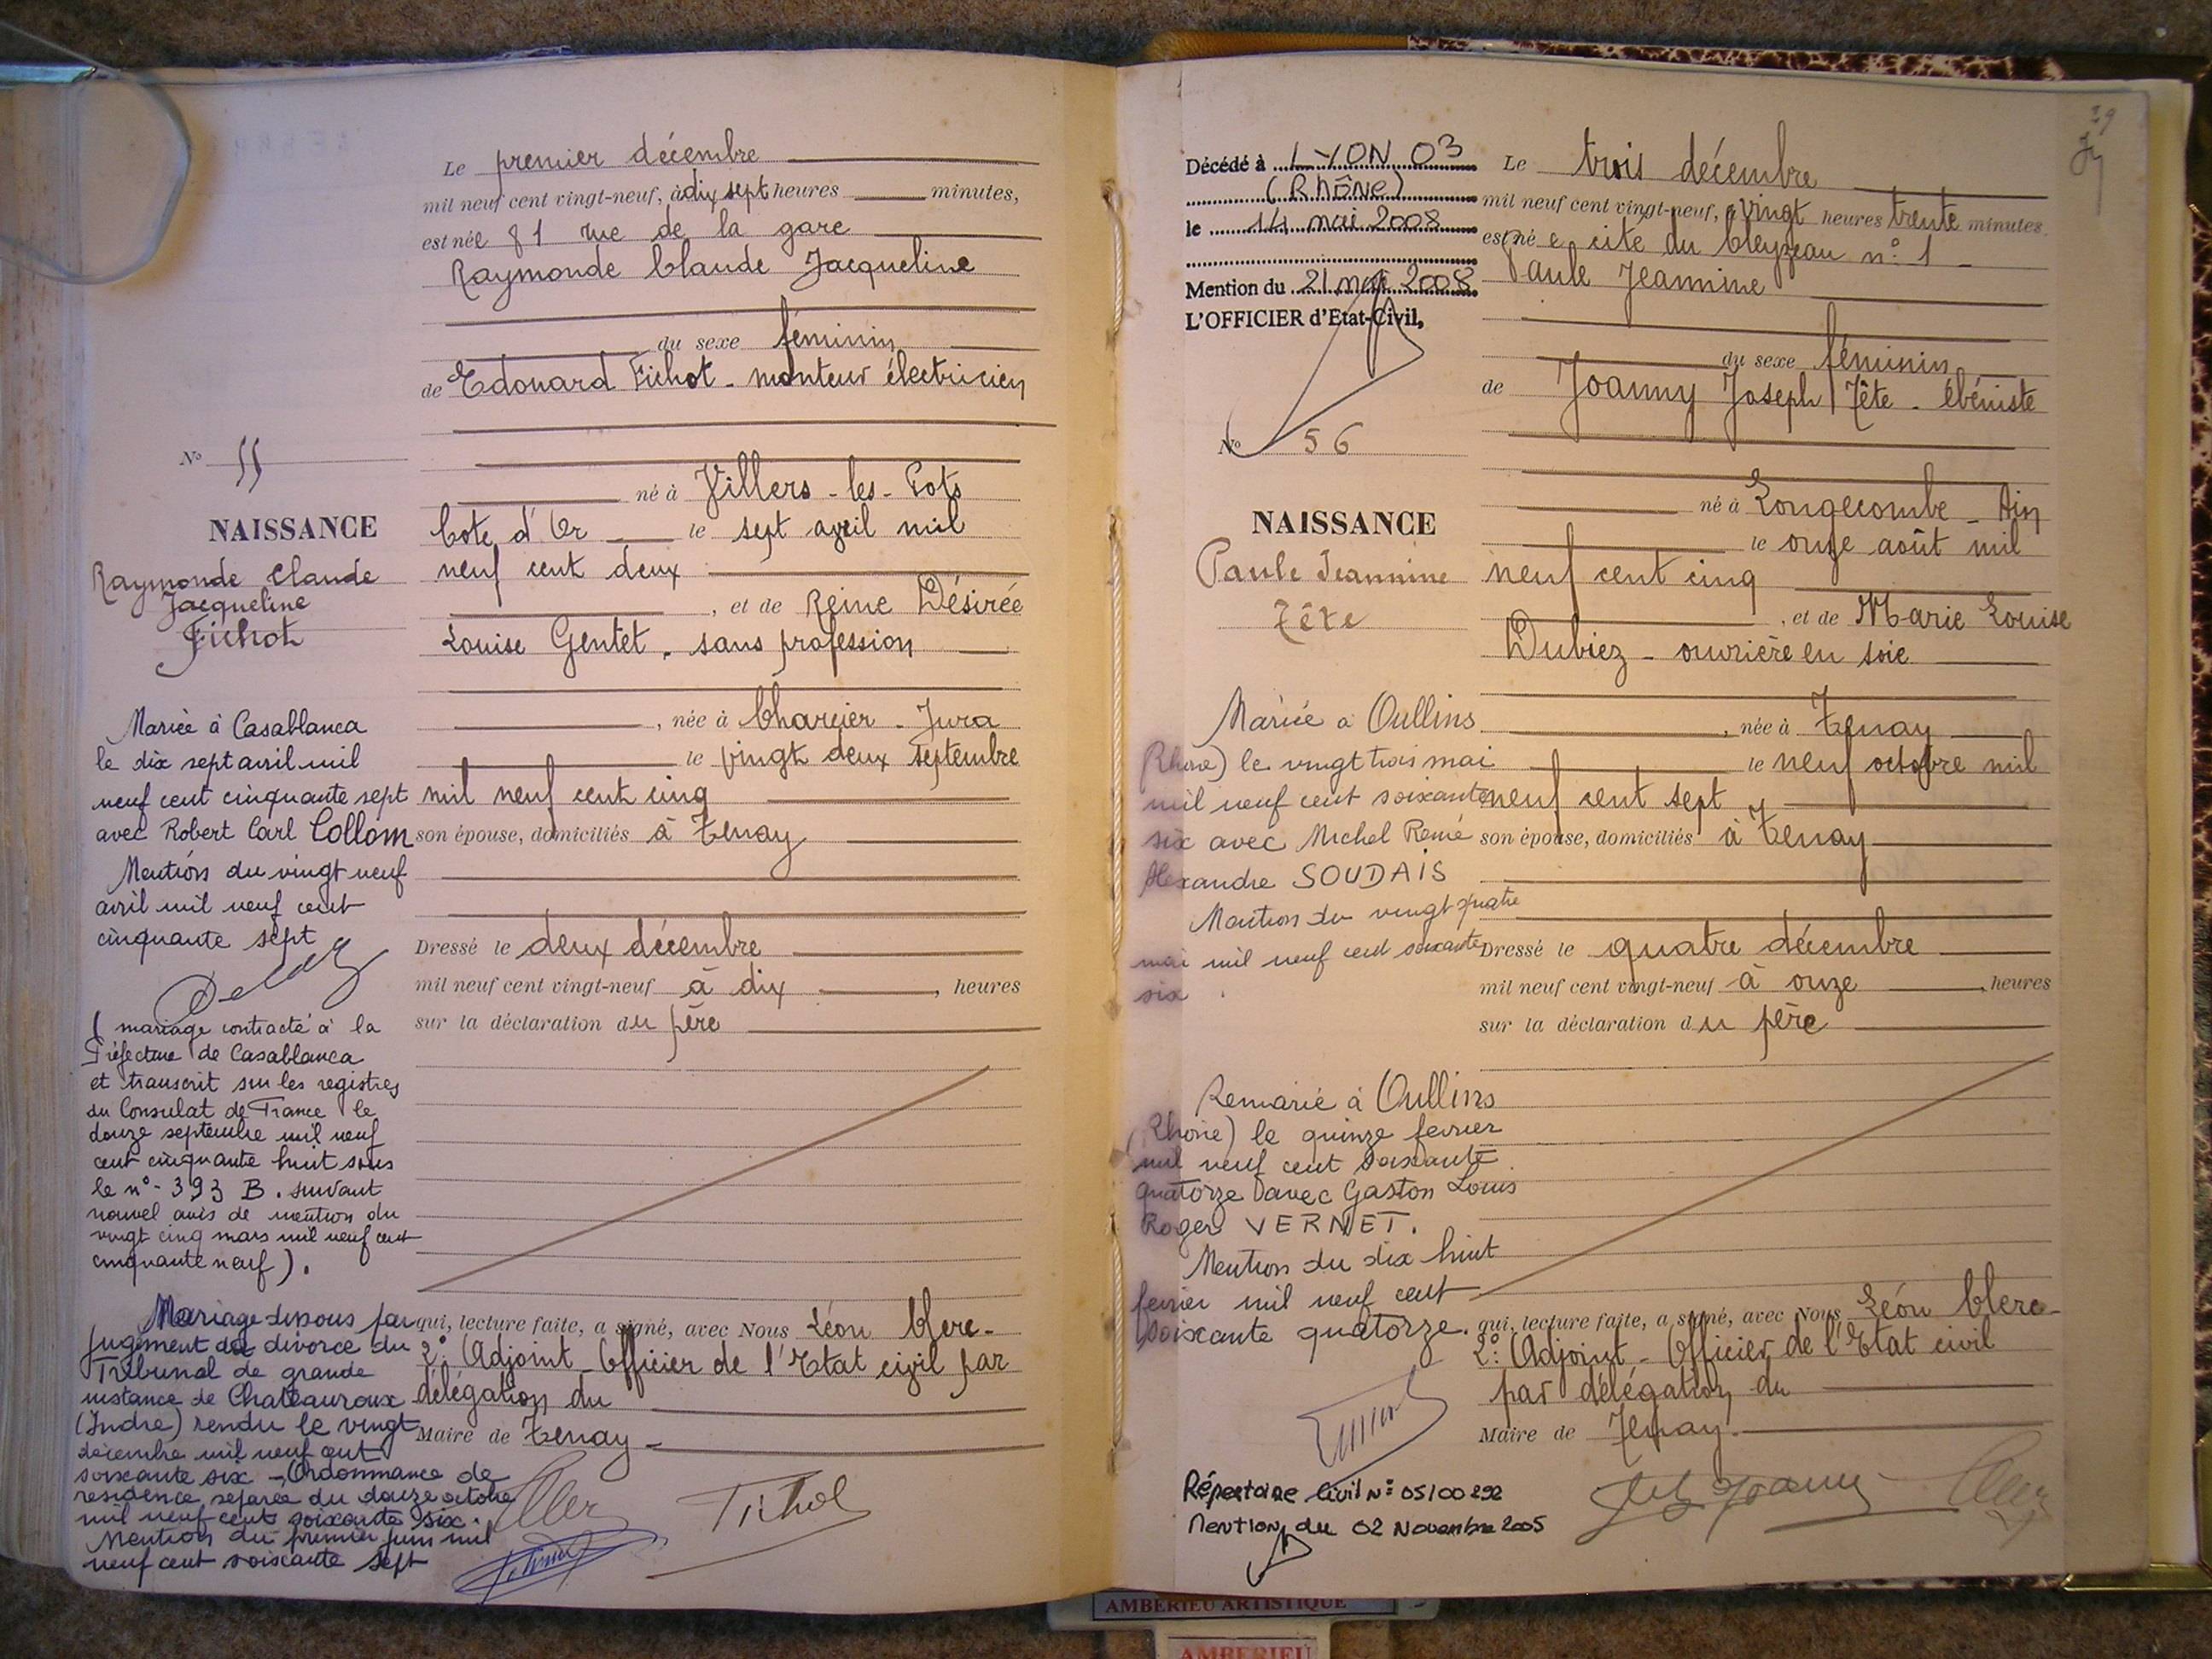 Le premier décembre
mil neuf cent vingt-neuf, à dix sept heures minutes,
est née 81 rue de la gare
Raymonde Claude Jacqueline
du sexe féminin
de Edouard Fichot - monteur électricien
né à Villers-les-Pots
Cote d'Or le sept avril mil
neuf cent deux
, et de Reine Désirée
Louise Gentet - sans profession
, née à Charcier - Jura
le vingt deux septembre
mil neuf cent cinq
son épouse, domiciliés à Tenay
Dressé le deux décembre
mil neuf cent vingt-neuf à dix , heures
sur la déclaration du père
qui, lecture faite, a signé, avec Nous Léon Clerc-
2e Adjoint - Officier de l'Etat civil par
délégation du
Maire de Tenay -
Fichot
No 55
NAISSANCE
Raymonde Claude
Jacqueline
Fichot
Mariée à Casablanca
le dix sept avril mil
neuf cent cinquante sept
avec Robert Carl Collom
Mention du vingt neuf
avril mil neuf cent
cinquante sept
( mariage contracté à la
Préfecture de Casablanca
et transcrit sur les registres
du Consulat de France le
douze septembre mil neuf
cent cinquante huit sous
le n° 393 B. suivant
nouvel avis de mention du
vingt cinq mars mil neuf cent
cinquante neuf ).
Mariage dissous par
jugement de divorce du
Tribunal de grande
instance de Chateauroux
(Indre) rendu le vingt
décembre mil neuf cent
soixante six - Ordonnance de
residence séparée du douze octobre
mil neuf cent soixante six.
Mention du premier juin mil
neuf cent soixante sept
39
Décédé à LYON 03
(RHÔNE)
le 14 mai 2008
Mention du 21 mai 2008
L'OFFICIER d'Etat-Civil,
No 56
NAISSANCE
Paule Jeannine
Tête
Mariée à Oullins
(Rhône) le vingt trois mai
mil neuf cent soixante
six avec Michel René
Alexandre SOUDAIS
Mention du vingt quatre
mai mil neuf cent soixante
six .
Remarié à Oullins
(Rhône) le quinze fevrier
mil neuf cent soixante
quatorze avec Gaston Louis
Roger VERNET.
Mention du dix huit
fevrier mil neuf cent
soixante quatorze.
Répertoire Civil N° 05/00292
Mention du 02 Novembre 2005
Le trois décembre
mil neuf cent vingt-neuf, à vingt heures trente minutes
est née cité du Cleyzeau n° 1 -
Paule Jeannine
du sexe féminin
de Joanny Joseph Tête - ébéniste
né à Longecombe - Ain
le onze août mil
neuf cent cinq
, et de Marie Louise
Dubiez - ouvrière en soie
, née à Tenay
le neuf octobre mil
neuf cent sept
son épouse, domiciliés à Tenay
Dressé le quatre décembre
mil neuf cent vingt-neuf à onze , heures
sur la déclaration du père
qui, lecture faite, a signé, avec Nous Léon Clerc-
2e Adjoint - Officier de l'Etat civil
par délégation du
Maire de Tenay.
AMBERIEU ARTISTIQUE
AMBERIEU